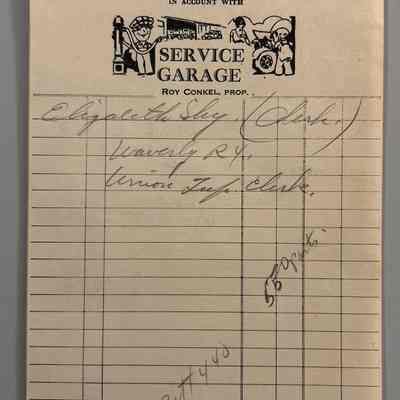 IN ACCOUNT WITH
SERVICE
GARAGE
ROY CONKEL, PROP.
Elizabeth Shy. (Clerk.)
Waverly R4.
Union Twp Clerk.
55
440